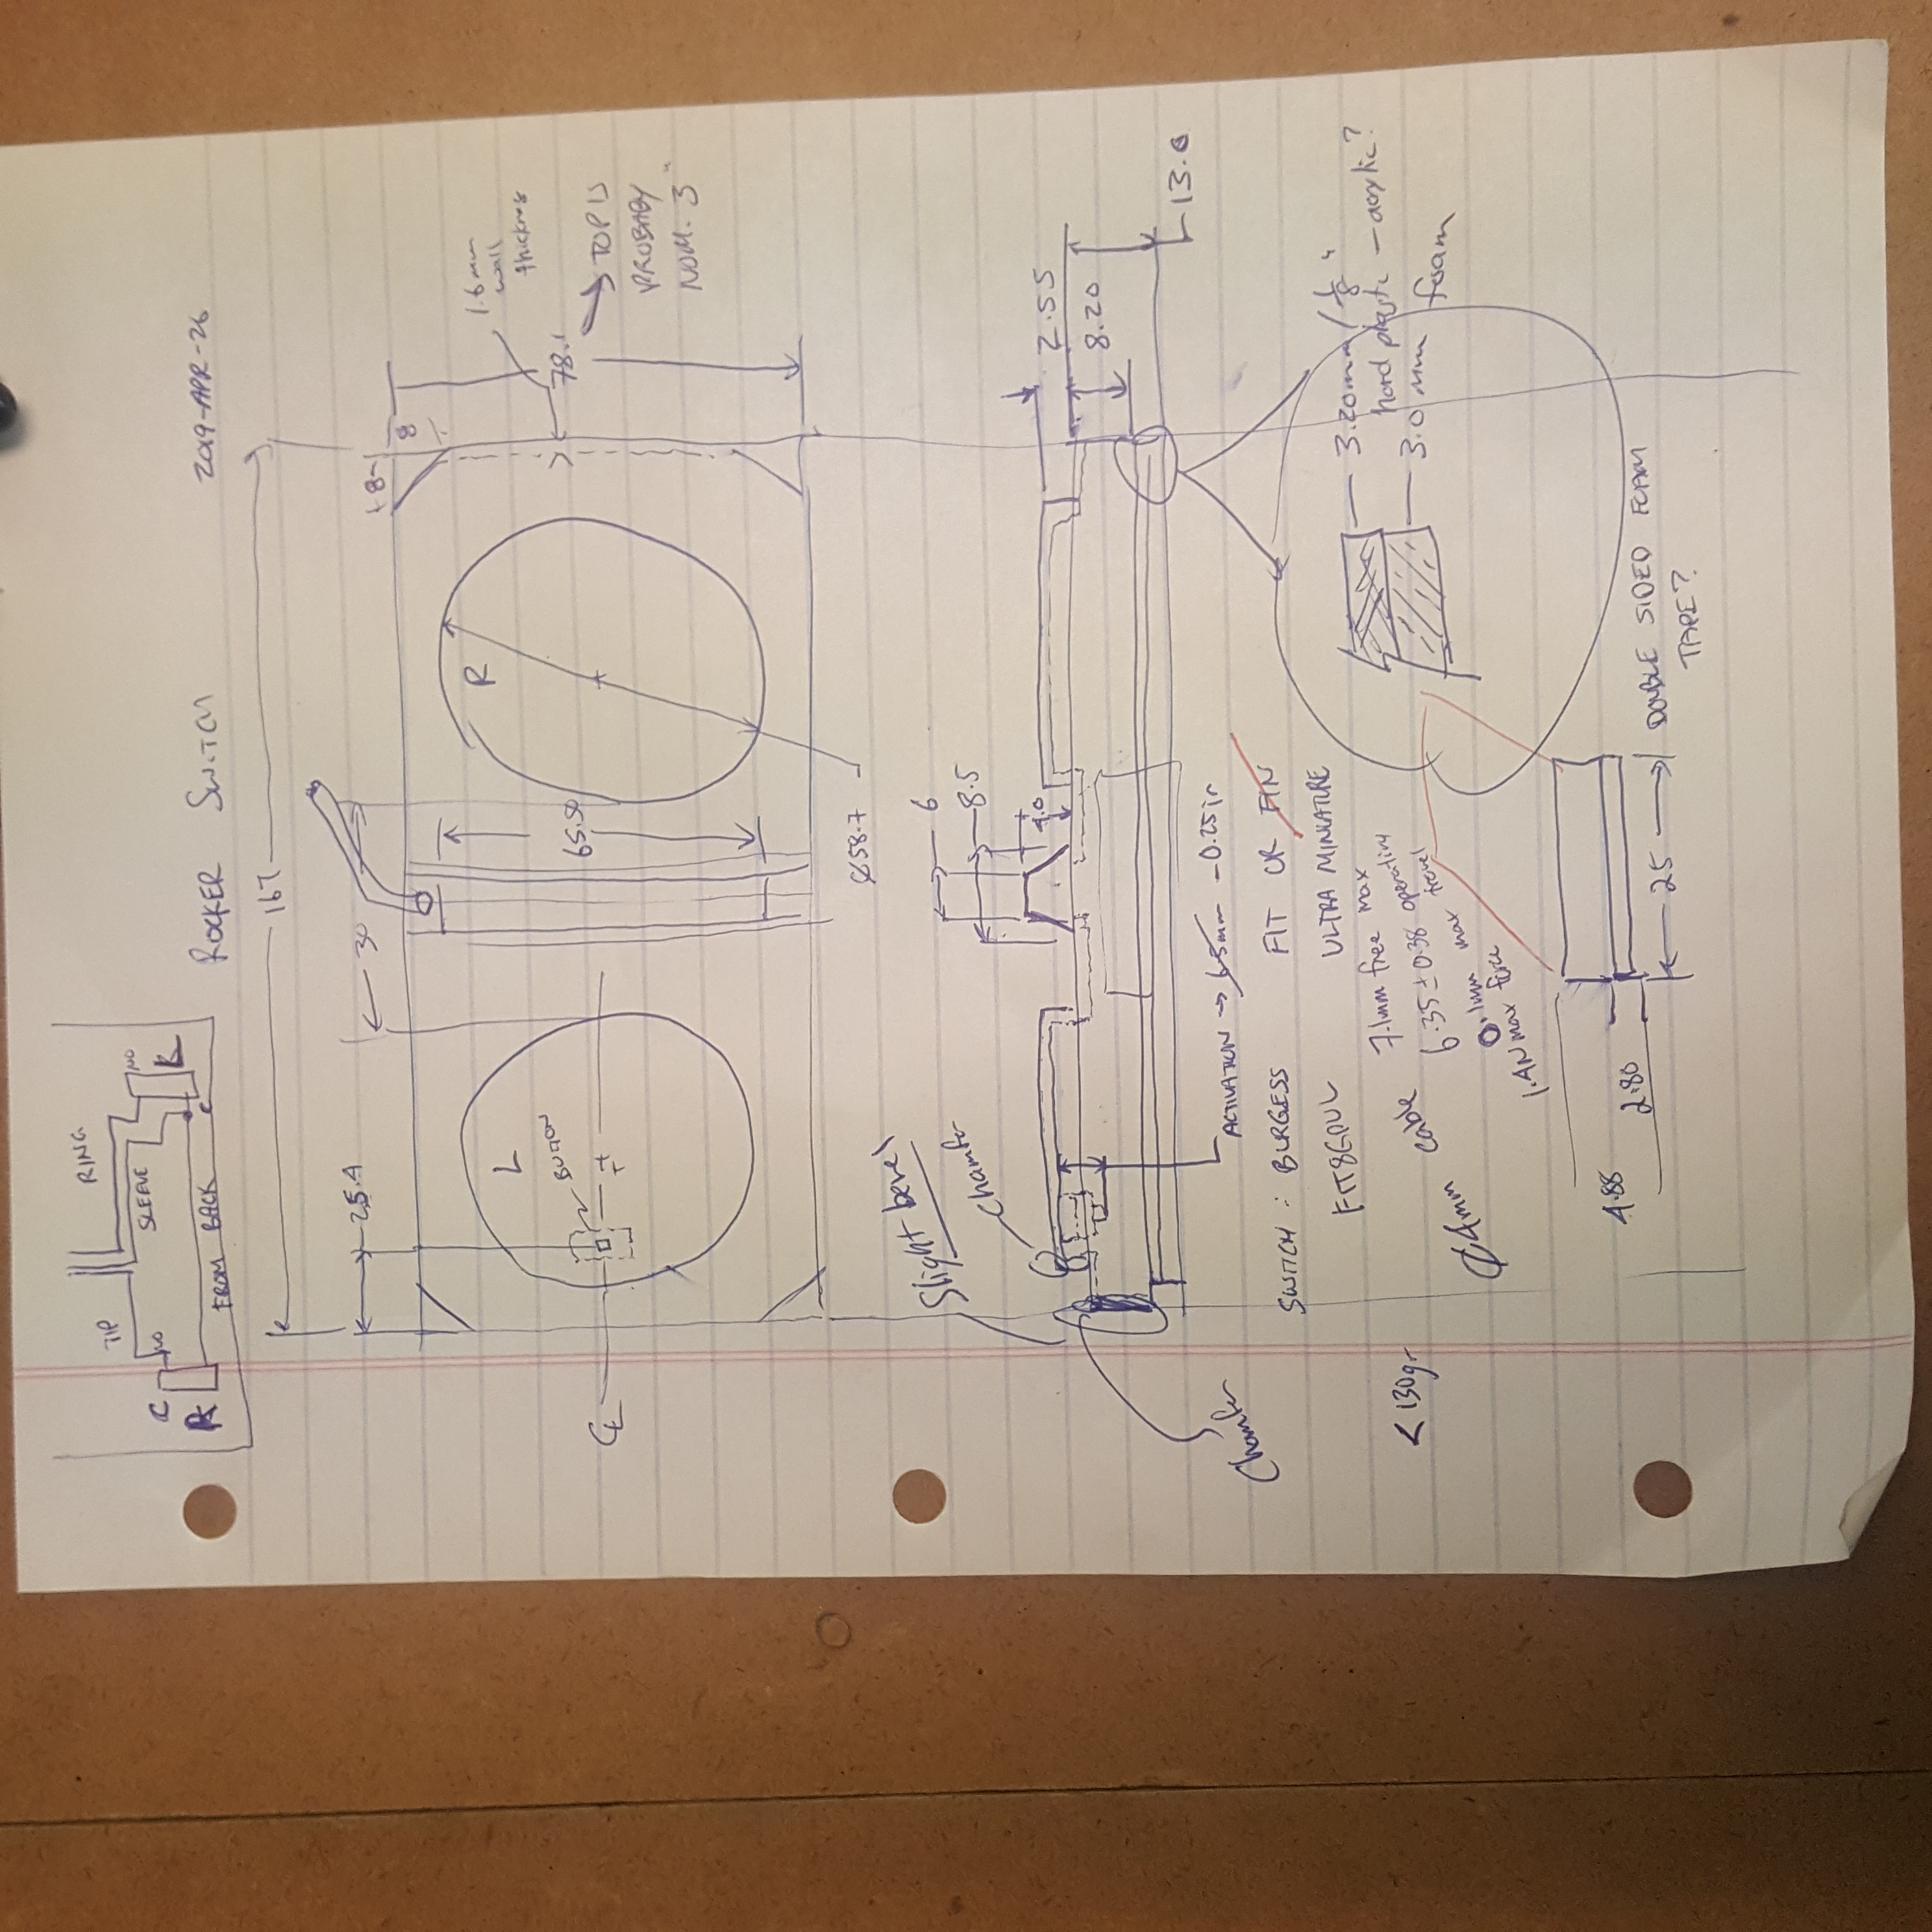 TIP
RING
NO
C
NO
SLEEVE
FROM BACK
C
ROCKER SWITCH
2019-APR-26
167
25.4
30
8
8
L
R
BUTTON
1.6mm
wall
thickness
65.50
78.1
TOP IS
PROBABY
NOM. 3"
Ø58.7
Slight bevel
Chamfer
6
8.5
4.0
2.55
8.20
13.0
Chamfer
ACTIVATION → 6.5mm - 0.25in
SWITCH : BURGESS FIT OR FIN
ULTRA MINIATURE
<130gr
Ø4mm cable
7.1mm free max
6.35±0.38 operating
0.1mm max travel
1.4N max force
3.20mm / 1/8"
hard plastic - acrylic?
3.0mm foam
4.88
2.80
25
DOUBLE SIDED FOAM
TAPE?